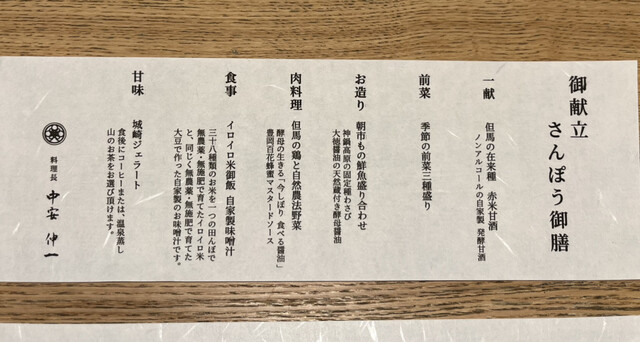 御献立
さんぽう御膳
一献
但馬の在来種 赤米甘酒
ノンアルコールの自家製 発酵甘酒
前菜
季節の前菜三種盛り
お造り
朝市もの鮮魚盛り合わせ
神鍋高原の固定種わさび
大徳醤油の天然蔵付き酵母醤油
肉料理
但馬の鶏と自然農法野菜
酵母の生きる「今しぼり 食べる醤油」
豊岡百花蜂蜜マスタードソース
食事
イロイロ米御飯 自家製味噌汁
三十八種類のお米を一つの田んぼで
無農薬・無施肥で育てたイロイロ米
と、同じく無農薬・無施肥で育てた
大豆で作った自家製のお味噌汁です。
甘味
城崎ジェラート
食後にコーヒーまたは、温泉蒸し
山のお茶をお選び頂けます。
料理長 中安 伸一